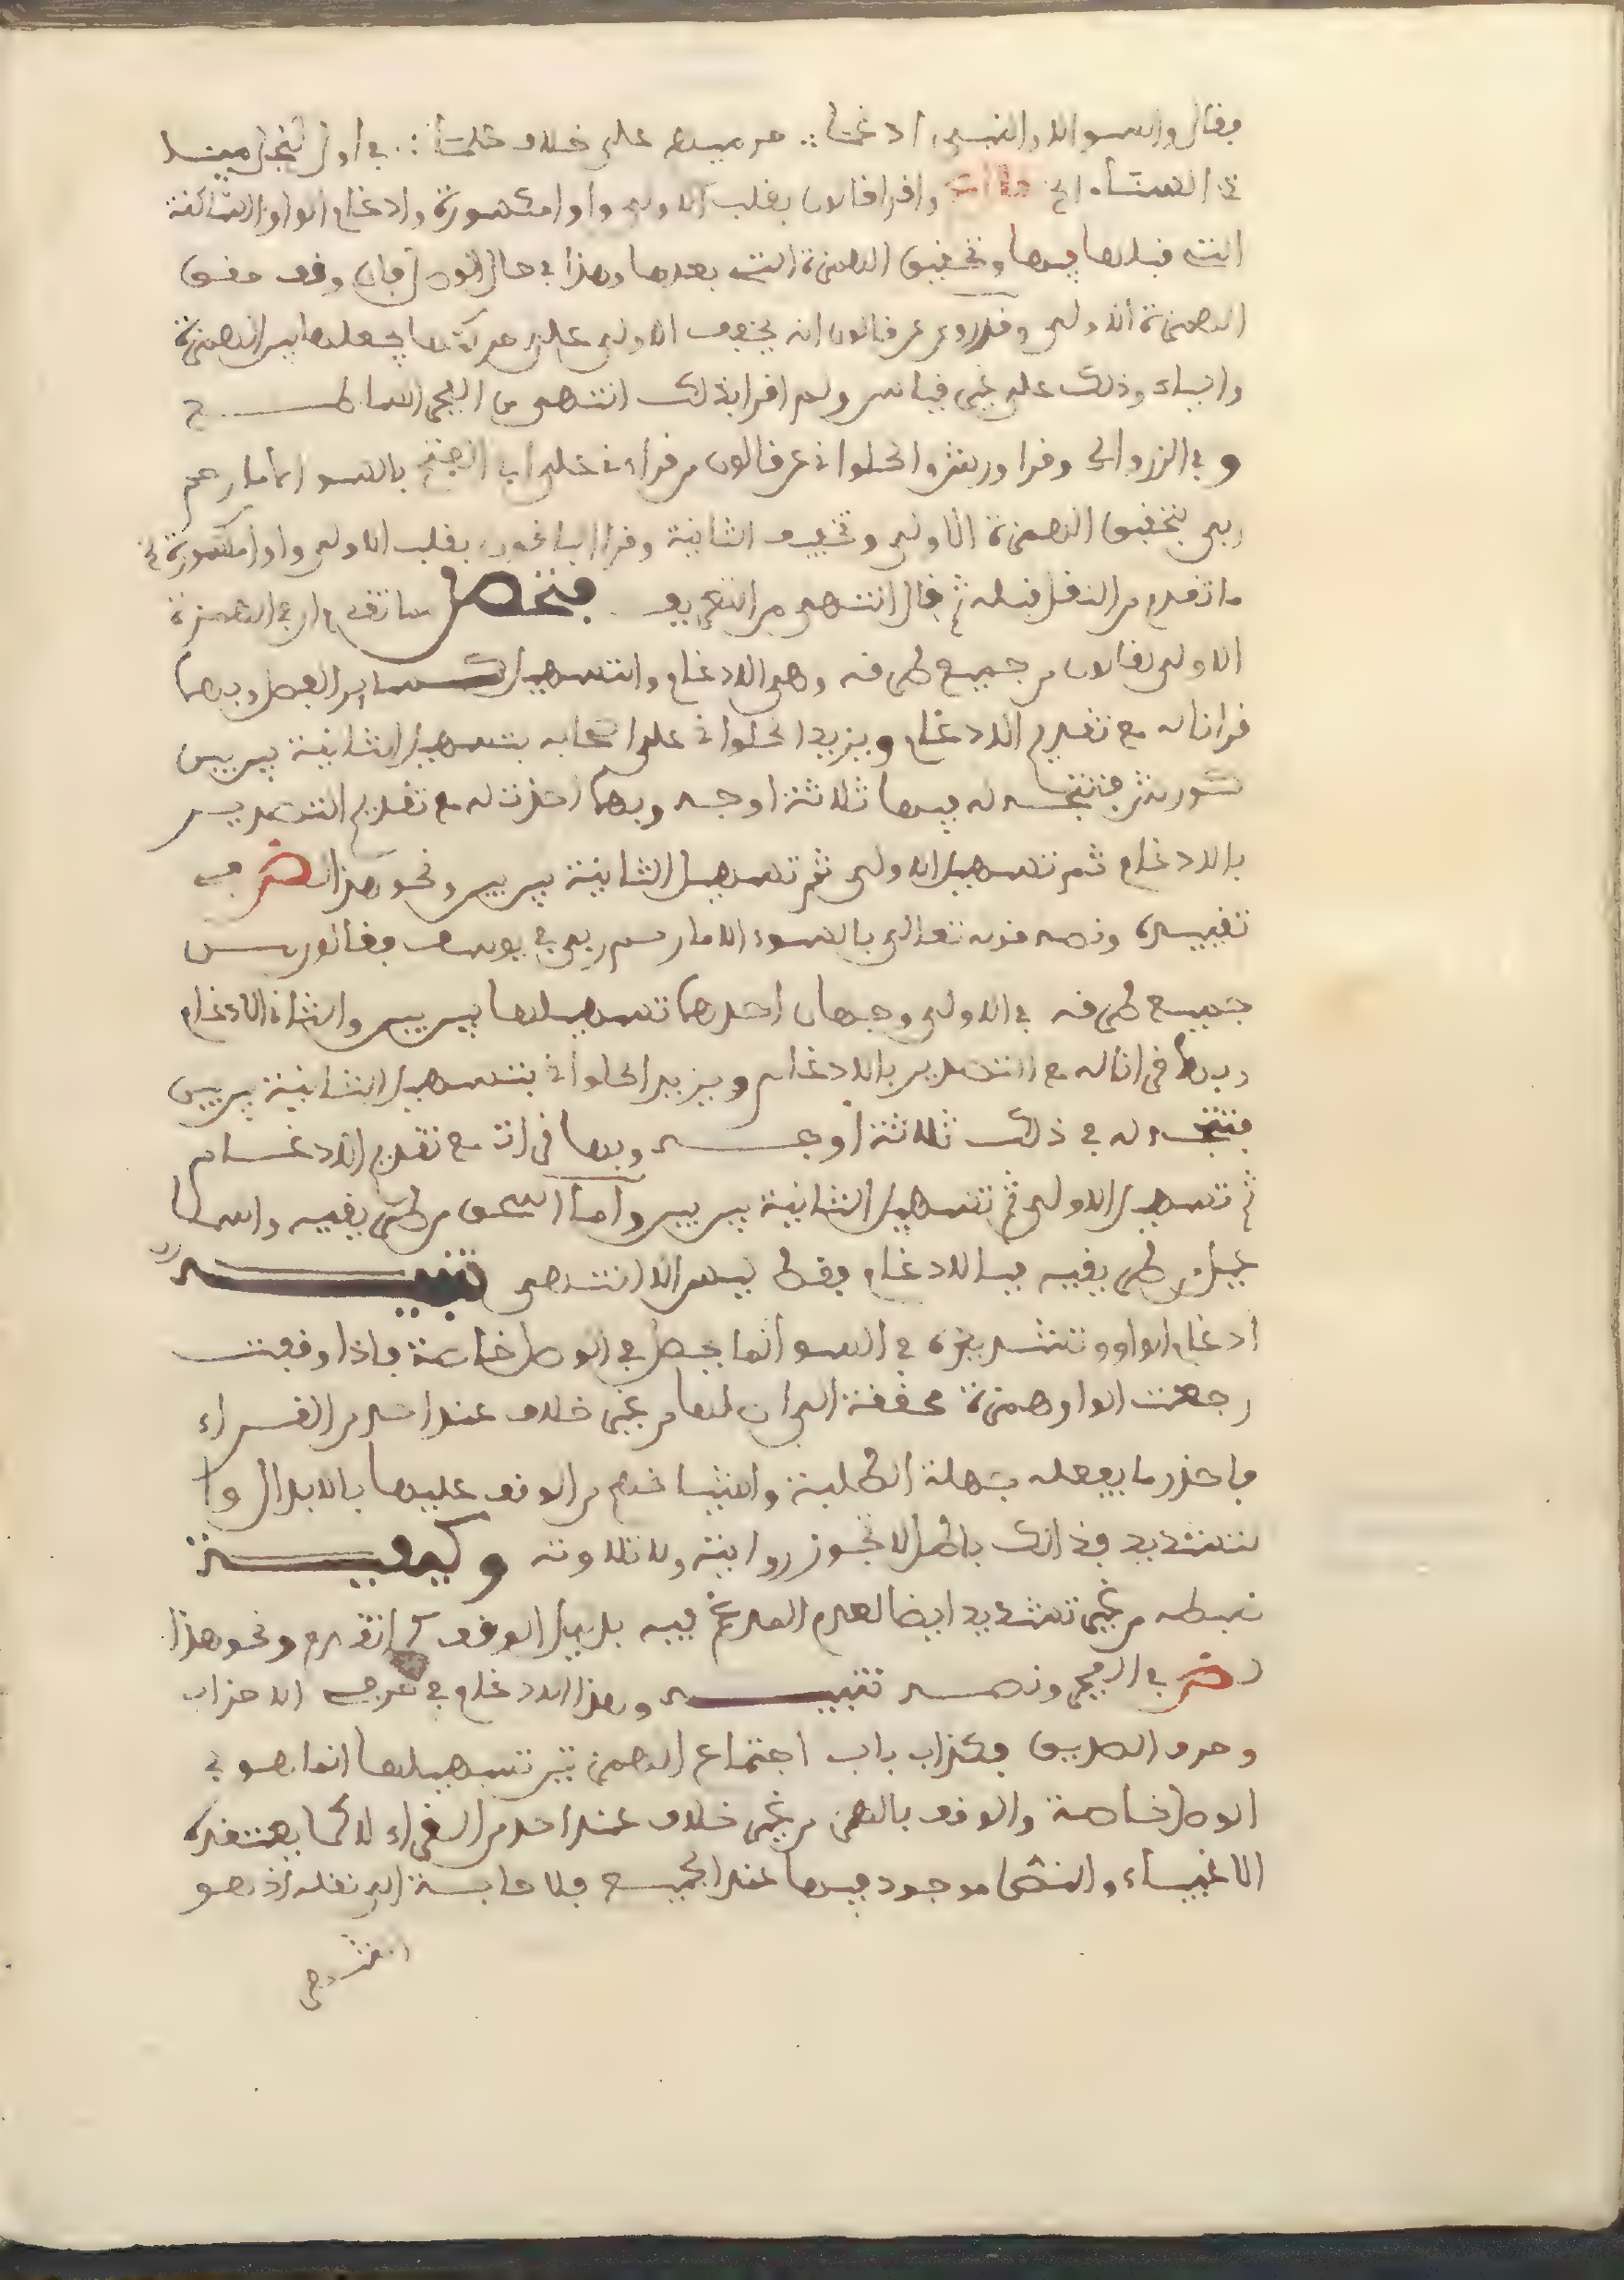 فقال والسوء الا والنبي ادغمتا ∴ حرميهم على خلاف خلتا ∴ في اول
في النساء الخ واقرا قالون بقلب الاولى واوا مكسورة وادغام الواو الساكنة
التي قبلها فيها وتحقيق الهمزة التي بعدها وهذا في حال الوصل فان وقف حقق
الهمزة الاولى وقد روي عن قالون انه يخفف الاولى على حركتها يجعلها بين الهمزة
والياء وذلك على غير قياس ولم اقرا بذلك انتهى من الفجر الساطع
وفي الزروالي وقرا ورش والحلواني عن قالون من قراءتي على ابي الفتح بالسوء الا ما رحم
ربي بتحقيق الهمزة الاولى وتخفيف الثانية وقرا الباقون بقلب الاولى واوا مكسورة
ما تقدم من النقل قبله ثم قال انتهى من التعريف فتحصل مما تقدم ان في الهمزة
الاولى لقالون من جميع طرقه وهي الادغام والتسهيل بين الفصل وبهما
قرانا له مع تقديم الادغام ويزيد الحلواني على اصحابه بتسهيل الثانية بين بين
كورش فيتجه له فيها ثلاثة اوجه وبها اخذت له مع تقديم التصدير
بالادغام ثم تسهيل الاولى ثم تسهيل الثانية بين بين ونحو هذا في
تقييده ونصه قوله تعالى بالسوء الا ما رحم ربي في يوسف فقالون من
جميع طرقه في الاولى وجهان احدهما تسهيلها بين بين والثاني الادغام
وبهما قرانا له مع التصدير بالادغام ويزيد الحلواني بتسهيل الثانية بين بين
فيتجه له في ذلك ثلاثة اوجه وبها قرات مع تقديم الادغام
ثم تسهيل الاولى ثم تسهيل الثانية بين بين واما اسحق من طريقيه واسما
عيل من طريقيه فبالادغام فقط ليس الا انتهى تنبيه
ادغام الواو وتشديده في السوء انما يحصل في الوصل خاصة فاذا وقفت
رجعت الواو همزة محققة الى اصلها من غير خلاف عند احد من القراء
فاحذر ما يفعله جهلة الطلبة واشياخهم من الوقف عليها بالابدال وا
لتشديد فذالك باطل لا تجوز روايته ولا تلاوته وكيفية
ضبطه من غير تشديد ايضا لعدم المدغم فيه بدليل الوقف كما تقدم ونحو هذا
في الفجر ونصه تنبيه وهذا الادغام في حرفي الاحزاب
وحرف الصديق فكذاب باب اجتماع الهمزتين تسهيلها انما هو في
الوصل خاصة والوقف بالهمز من غير خلاف عند احد من القراء لا كما يعتقده
الاغبياء والنص موجود فيها عند الجميع فلا حاجة الى نقله اذ هو
انتهى